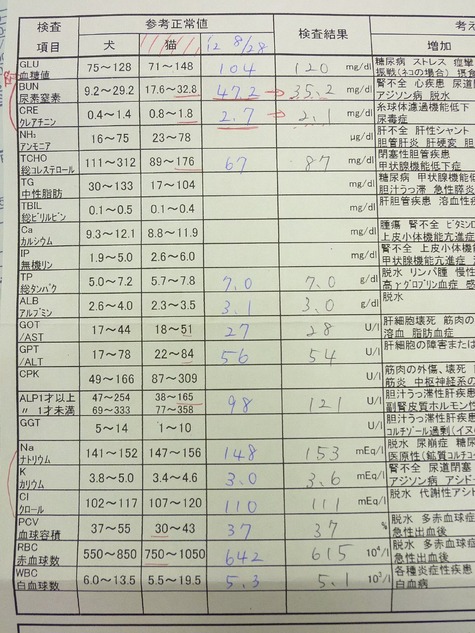 検査
項目 参考正常値 検査結果 考え
犬 猫 12 8/28 増加
GLU
血糖値 75～128 71～148 104 120 mg/dl 糖尿病 ストレス 症
振戦(ネコの場合) 摂食
BUN
尿素窒素 9.2～29.2 17.6～32.8 47.2 → 35.2 mg/dl 腎不全 心疾患 尿道
アジソン病 脱水
CRE
クレアチニン 0.4～1.4 0.8～1.8 2.7 → 2.1 mg/dl 糸球体濾過機能低下
尿毒症
NH₃
アンモニア 16～75 23～78 μg/dl 肝不全 門脈シャント
胆管肝炎 肝硬変 胆
TCHO
総コレステロール 111～312 89～176 67 87 mg/dl 閉塞性胆管疾患
甲状腺機能低下症
TG
中性脂肪 30～133 17～104 mg/dl 糖尿病 甲状腺機能低
胆汁うっ滞 急性膵炎
TBIL
総ビリルビン 0.1～0.5 0.1～0.4 mg/dl 肝胆管疾患 溶血性
Ca
カルシウム 9.3～12.1 8.8～11.9 mg/dl 腫瘍 腎不全 ビタミンD
上皮小体機能亢進症
IP
無機リン 1.9～5.0 2.6～6.0 mg/dl 腎不全 上皮小体機能
甲状腺機能亢進症
TP
総タンパク 5.0～7.2 5.7～7.8 7.0 7.0 g/dl 脱水 リンパ腫 慢性
高γグロブリン血症 感
ALB
アルブミン 2.6～4.0 2.3～3.5 3.1 3.0 g/dl 脱水
GOT
/AST 17～44 18～51 27 28 U/l 肝細胞壊死 筋肉の
溶血 脂肪血症
GPT
/ALT 17～78 22～84 56 54 U/l 肝細胞の障害または
CPK 49～166 87～309 筋肉の外傷、壊死
筋炎 中枢神経系の
ALP1才以上
〃 1才未満 47～254
69～333 38～165
77～358 98 121 U/l 胆汁うっ滞性肝疾
副腎皮質ホルモン性
GGT 5～14 1～10 U/l 胆汁うっ滞性肝疾
コルチゾール過剰(イヌの
Na
ナトリウム 141～152 147～156 148 153 mEq/l 脱水 尿崩症 糖尿
医原性(鉱質コルチコ
K
カリウム 3.8～5.0 3.4～4.6 3.0 3.6 mEq/l 腎不全 尿道閉塞
アジソン病 アシド
Cl
クロール 102～117 107～120 110 111 mEq/l 脱水 代謝性アシド
PCV
血球容積 37～55 30～43 37 37 % 脱水 多赤血球症
急性出血後
RBC
赤血球数 550～850 750～1050 642 615 10⁴/l 脱水 多赤血球症
急性出血後
WBC
白血球数 6.0～13.5 5.5～19.5 5.3 5.1 10³/l 各種炎症性疾患
白血病